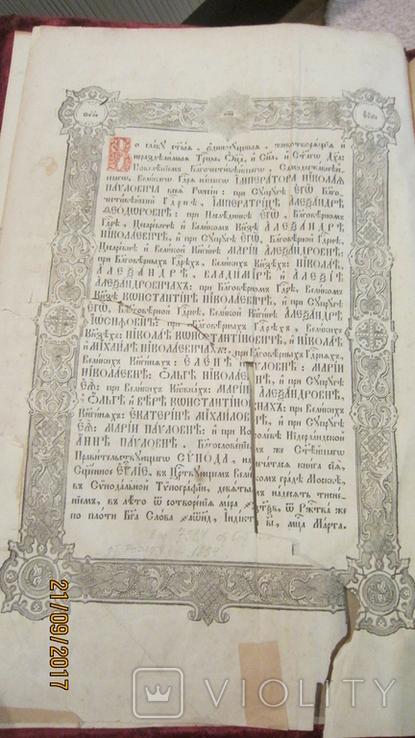 Во славу ст҃ыя, единосущныя, животворящія и
нераздѣлимыя Трⷪ҇цы, Оц҃а, и Сн҃а, и Ст҃агѡ Дх҃а:
Повелѣнїемъ Благочестивѣйшагѡ, Самодержавнѣй-
шагѡ Великагѡ Гдⷭ҇ря нашегѡ ІМПЕРАТОРА НІКОЛАЯ
ПАУЛОВИЧА всея Рѡссіи: при Супругѣ ЕГѠ̀ Благо-
честивѣйшей Гдⷭ҇рнѣ, ІМПЕРАТРИЦѢ АЛЕѮАНДРѢ
ѲЕОДѠРОВНѢ: при Наслѣдникѣ ЕГѠ̀, Благовѣрномъ
Гдⷭ҇рѣ, Цесаревичѣ и Великомъ Кнѧзѣ АЛЕѮАНДРѢ
НІКОЛАЕВИЧѢ, и при Супругѣ ЕГѠ̀, Благовѣрной Гдⷭ҇рнѣ,
Цесаревнѣ и Великой Кнѧгинѣ МАРІИ АЛЕѮАНДРОВНѢ:
при Благовѣрныхъ Гдⷭ҇рѣхъ, Великихъ Кнѧзехъ НІКОЛАѢ,
АЛЕѮАНДРѢ, ВЛАДИМІРѢ И АЛЕѮІѢ
АЛЕѮАНДРОВИЧАХЪ: при Благовѣрномъ Гдⷭ҇рѣ, Великомъ
Кнѧзѣ КѠНСТАНТІНѢ НІКОЛАЕВИЧѢ, и при Супругѣ
ЕГѠ̀, Благовѣрной Гдⷭ҇рнѣ, Великой Кнѧгинѣ АЛЕѮАНДРѢ
ІѠСИФОВНѢ: при Благовѣрныхъ Гдⷭ҇рѣхъ, Великихъ
Кнѧзехъ: НІКОЛАѢ КѠНСТАНТІНОВИЧѢ, НІКОЛАѢ
и МІХАИЛѢ НІКОЛАЕВИЧАХЪ: при Благовѣрныхъ Гдⷭ҇рнѧхъ,
Великихъ Кнѧгинѧхъ: ЕЛЕНѢ ПАУЛОВНѢ: МАРІИ
НІКОЛАЕВНѢ: ОЛЬГѢ НІКОЛАЕВНѢ, и при Супругѣ
ЕѦ̀: при Великихъ Кнѧжнахъ: МАРІИ АЛЕѮАНДРОВНѢ,
ОЛЬГѢ и ВѢРѢ КѠНСТАНТІНОВНАХЪ: при Великихъ
Кнѧгинѧхъ: ЕКАТЕРИНѢ МІХАИЛОВНѢ, и при Супругѣ
ЕѦ̀: МАРІИ ПАУЛОВНѢ: и при Королевѣ Нідерландской
АННѢ ПАУЛОВНѢ. Благословенїемъ же Ст҃ѣйшагѡ
Правительствующагѡ СУНОДА, напечатася книга сїя,
Сщ҃енное ЕѴⷢ҇ЛІЕ, въ Цⷭ҇рствующемъ Великомъ градѣ Москвѣ,
въ Сѵнодальной Тѵпографіи, девятымъ надесять тисне-
нїемъ, въ лѣто ѿ сотворенїя мїра ѿ Ржⷭ҇тва же
по плоти Бг҃а Слова Індікта мⷭ҇ца Марта.
21/09/2017
VIOLITY